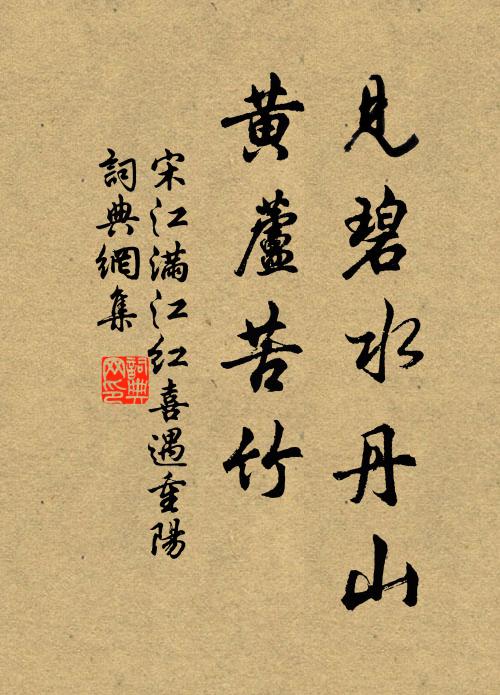 見碧水丹山
黃蘆苦竹
宋江滿江红喜遇重陽
詞典網集
詞典網印